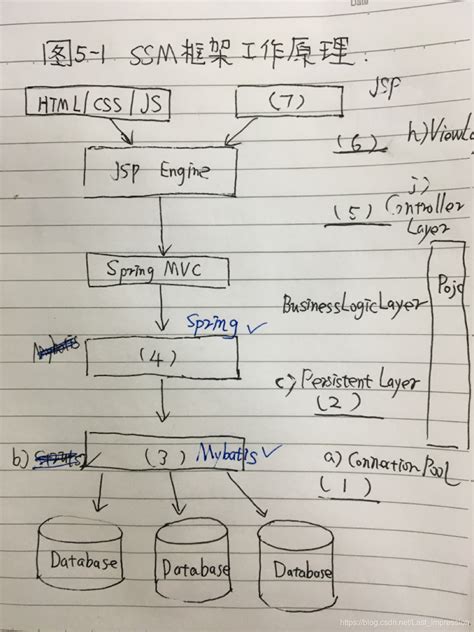 图5-1 SSM框架工作原理:
HTML/CSS/JS
(7)
JSP
(6)
h)View
JSP Engine
j)
(5) Controller
Layer
Spring MVC
Pojo
BusinessLogicLayer
Spring ✓
(4)
c) Persistent Layer
(2)
b)
(3) Mybatis ✓
a) Connection Pool
(1)
Database
Database
Database
https://blog.csdn.net/Last_Impression